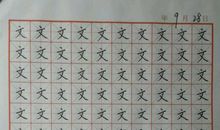 年9月28日
文文文文文文文文文文
文文文文文文文文文文
文文文文文文文文文文
文文文文文文文文文文
文文文文文文文文文文